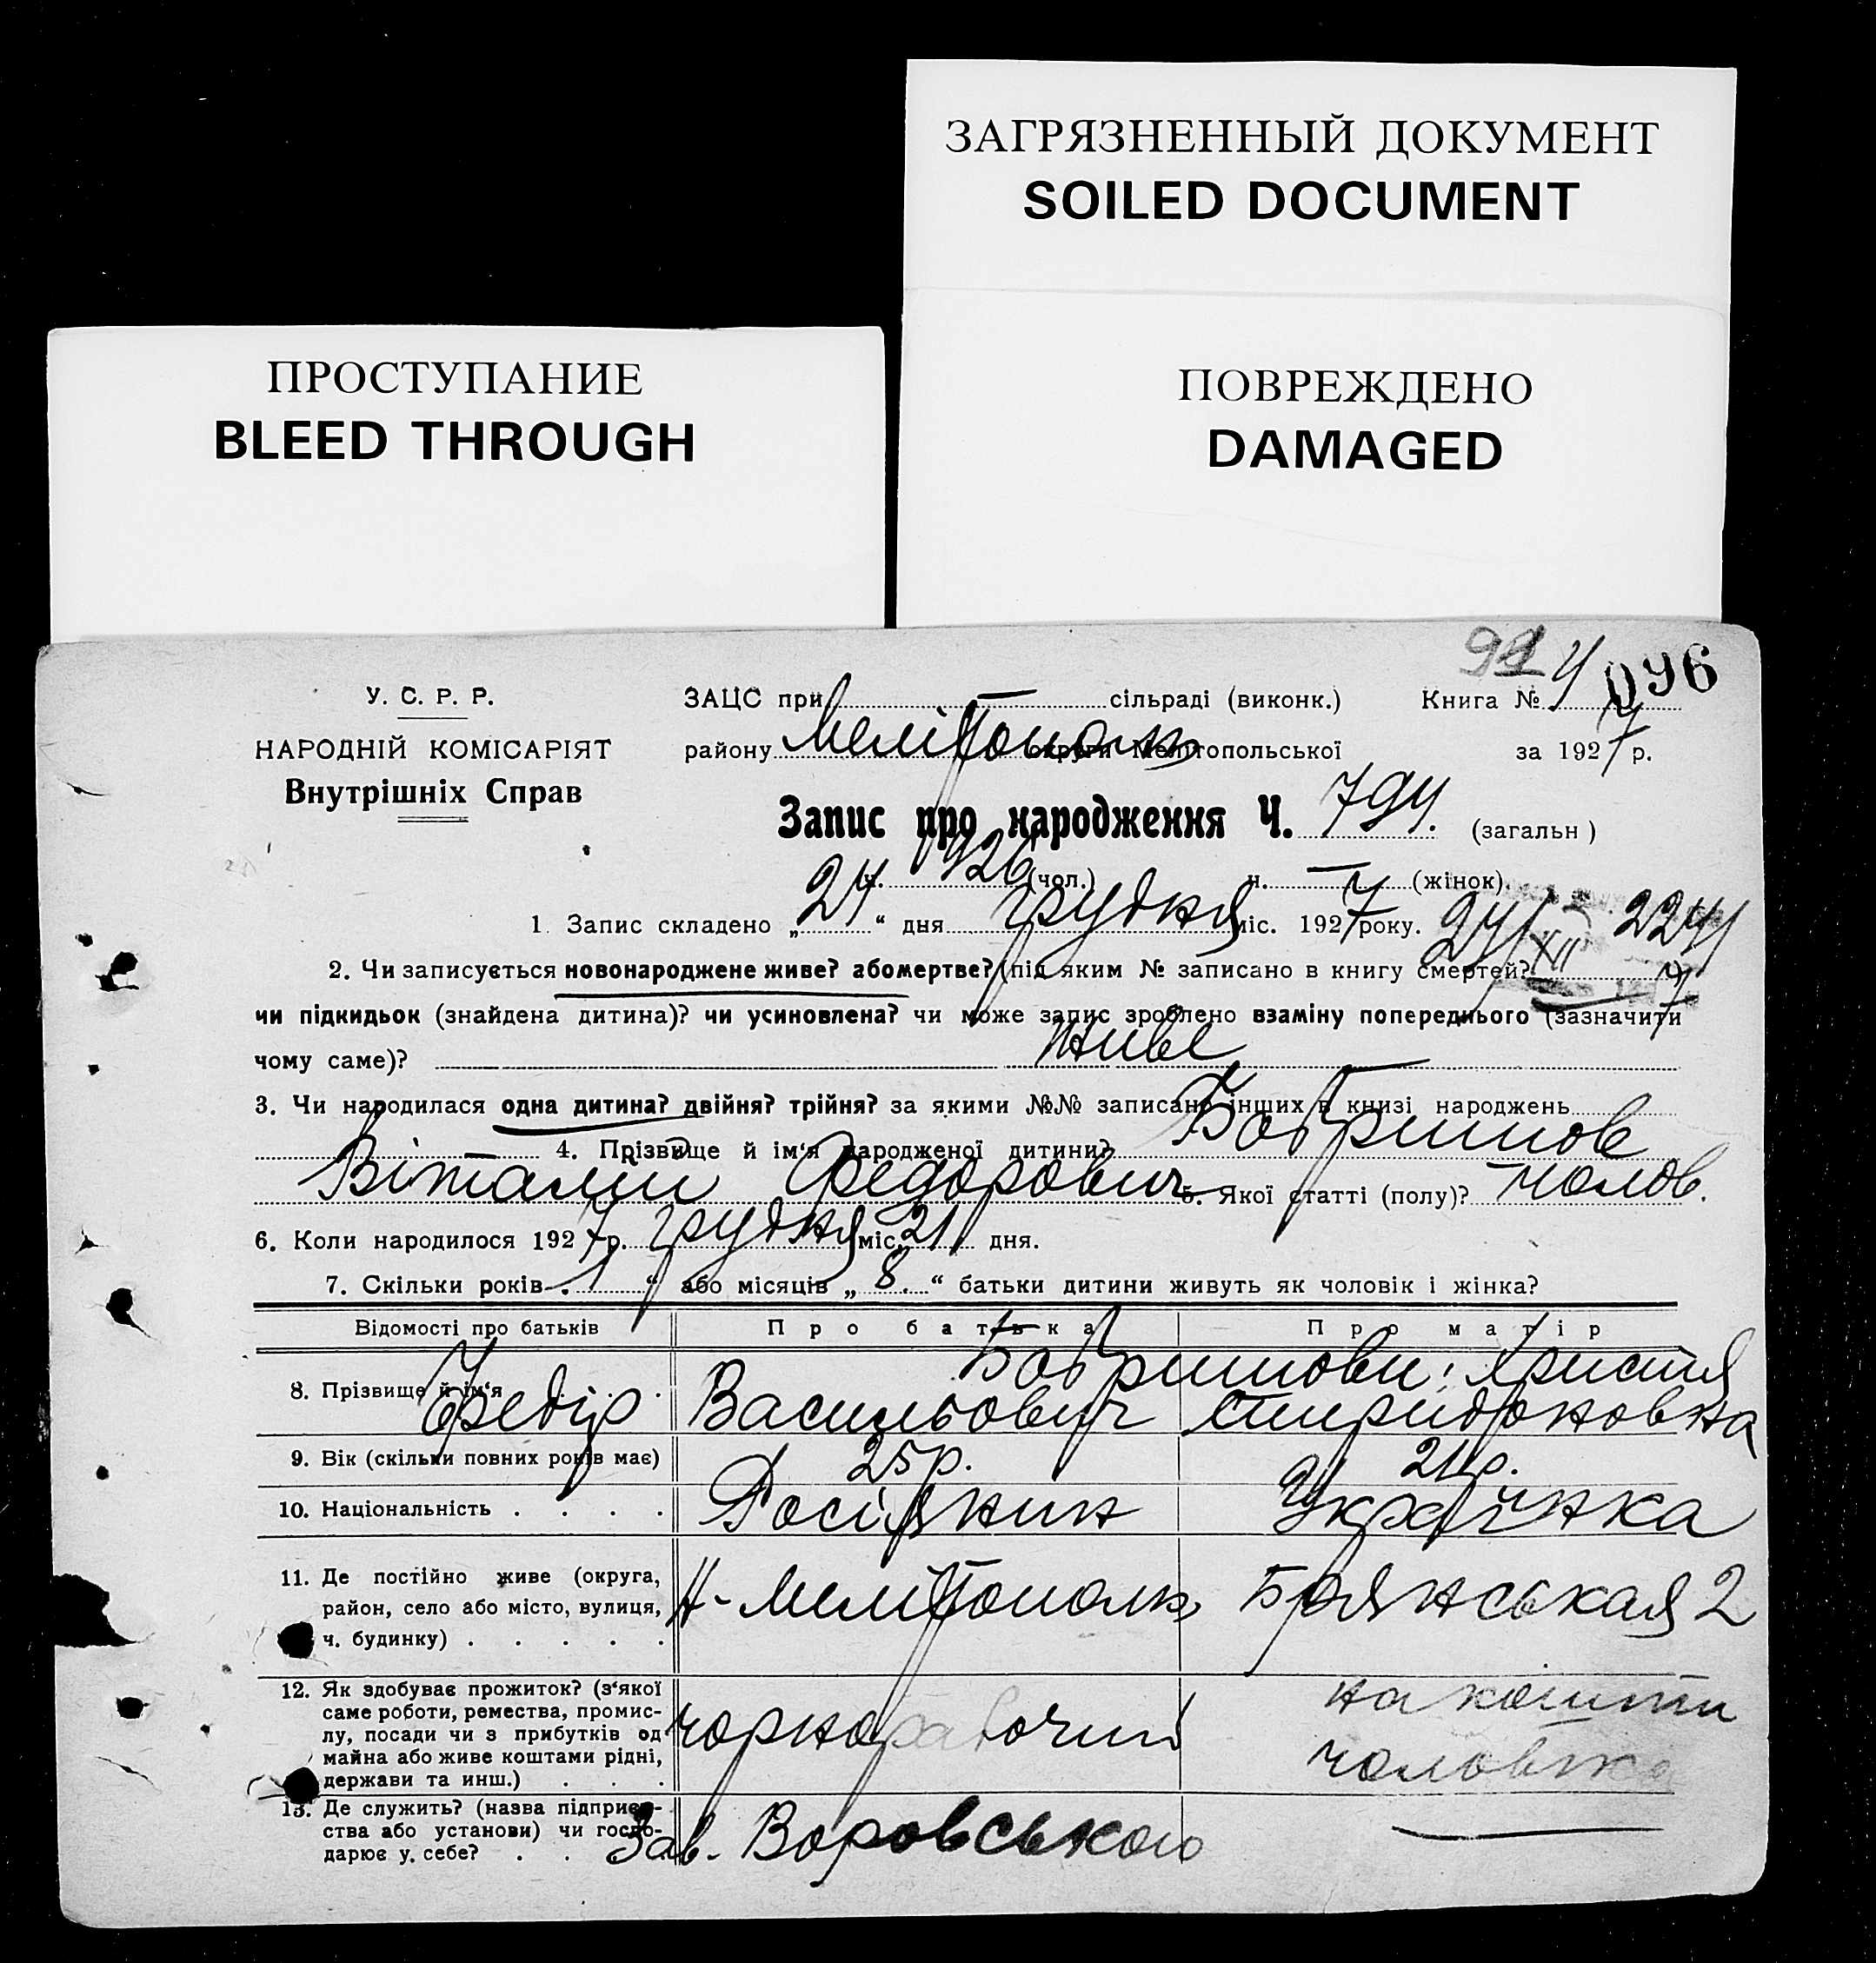 ЗАГРЯЗНЕННЫЙ ДОКУМЕНТ
SOILED DOCUMENT
ПРОСТУПАНИЕ
BLEED THROUGH
ПОВРЕЖДЕНО
DAMAGED
096
У. С. Р. Р.
НАРОДНІЙ КОМІСАРІЯТ
Внутрішніх Справ
ЗАЦС при сільраді (виконк.) Книга № 4
району Мелітополь округи Мелітопольської за 1927 р.
Запис про народження Ч. 794. (загальн)
ч. 426 (чол.) ч. — (жінок).
1. Запис складено „24“ дня грудня міс. 1927 року.
24/XII 2241
2. Чи записується новонароджене живе? або мертве? (під яким № записано в книгу смертей?
чи підкидьок (знайдена дитина)? чи усиновлена? чи може запис зроблено взаміну попереднього (зазначити
чому саме)? живе
3. Чи народилася одна дитина? двійня? трійня? за якими №№ записано інших в книзі народжень
4. Прізвище й ім'я народженої дитини? Бобришов
Віталій Федорович 5. Якої статті (полу)? чолов.
6. Коли народилося 1927 р. грудня міс. 21 дня.
7. Скільки років „1“ або місяців „8“ батьки дитини живуть як чоловік і жінка?
Відомості про батьків Про батька Про матір
8. Прізвище й ім'я Бобришови: Христя
Федір Васильович Спиридоновна
9. Вік (скільки повних років має) 25 р. 21 р.
10. Національність . . . . Росіянин Українка
11. Де постійно живе (округа,
район, село або місто, вулиця,
ч. будинку) . . . . .
Мелітополь Брянськая 2
12. Як здобуває прожиток? (з'якої
саме роботи, ремества, промис-
лу, посади чи з прибутків од
майна або живе коштами рідні,
держави та инш.) . . .
чорнорабочий на кошти
чоловіка
13. Де служить? (назва підприєм-
ства або установи) чи госпо-
дарює у себе? . .
Зав. Воровського —